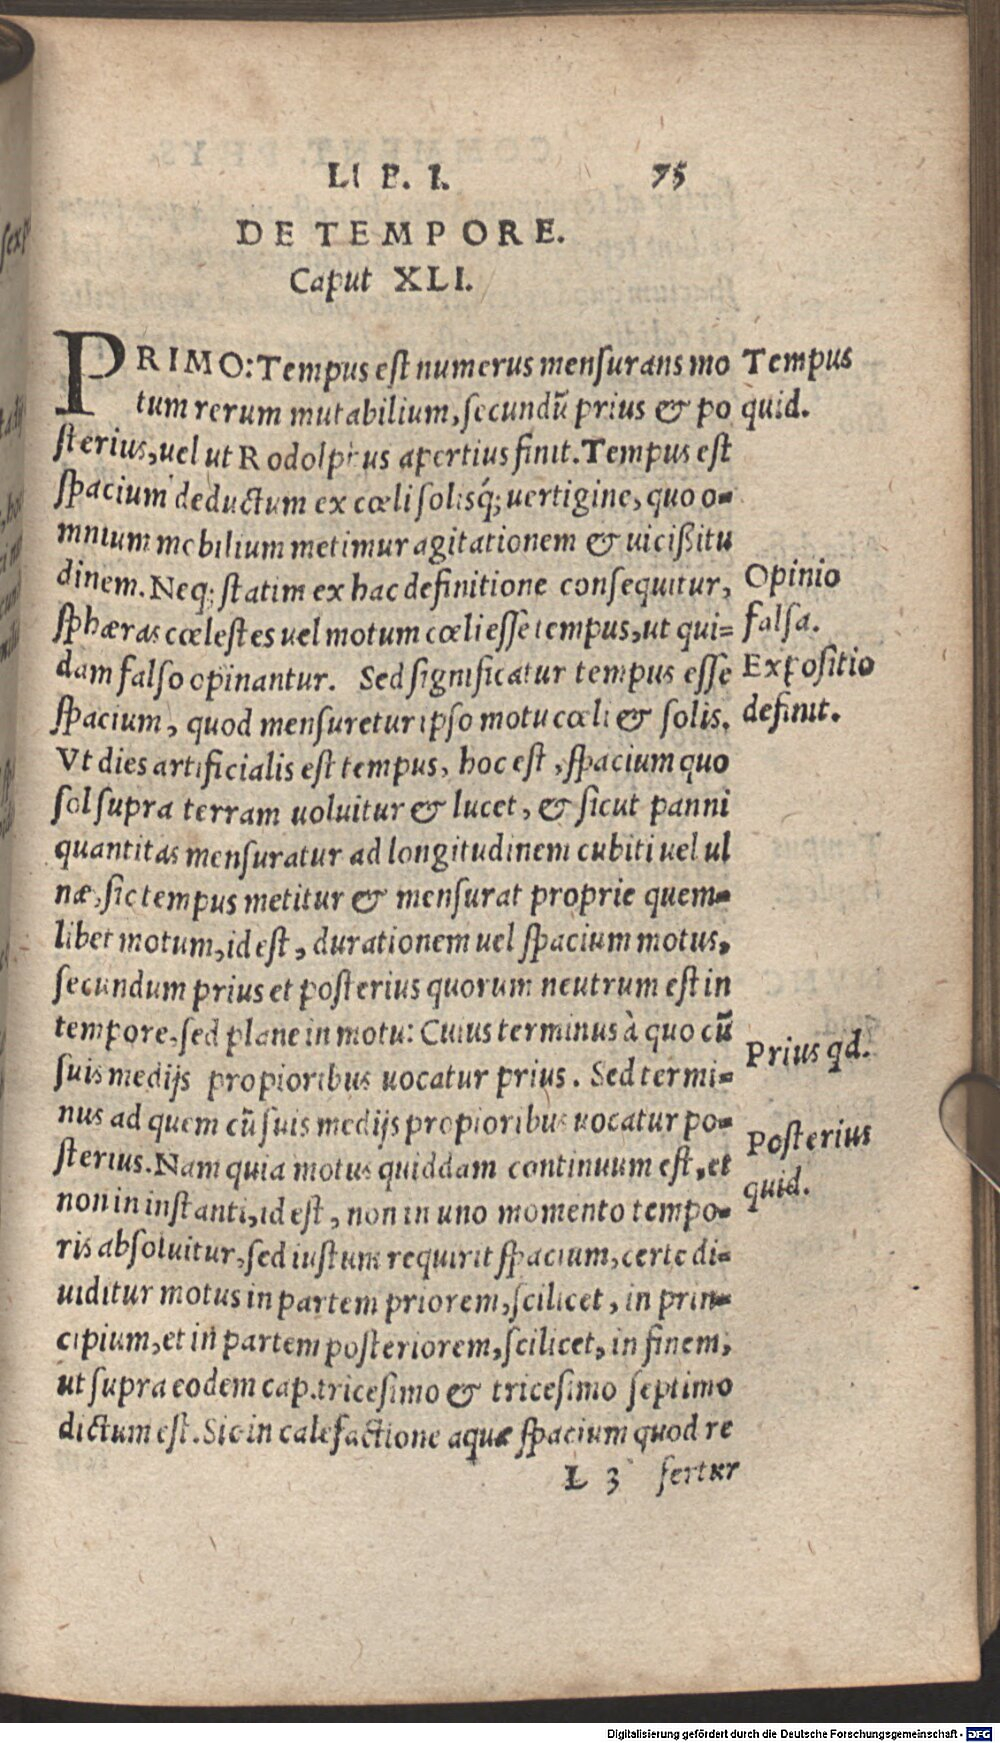 LIB. I. 75
DE TEMPORE.
Caput XLI.
PRIMO: Tempus est numerus mensurans mo
tum rerum mutabilium, secundũ prius & po
sterius, uel ut Rodolphus apertius finit. Tempus est
spacium deductum ex cœli solisq́; uertigine, quo o-
mnium mobilium metimur agitationem & uicißitu
dinem. Neq; statim ex hac definitione consequitur,
sphæras cœlestes uel motum cœli esse tempus, ut qui-
dam falso opinantur. Sed significatur tempus esse
spacium, quod mensuretur ipso motu cœli & solis.
Vt dies artificialis est tempus, hoc est, spacium quo
sol supra terram uoluitur & lucet, & sicut panni
quantitas mensuratur ad longitudinem cubiti uel ul
næ, sic tempus metitur & mensurat proprie quem-
libet motum, id est, durationem uel spacium motus,
secundum prius et posterius quorum neutrum est in
tempore, sed plane in motu: Cuius terminus à quo cũ
suis medijs propioribus uocatur prius. Sed termi-
nus ad quem cũ suis medijs propioribus uocatur po-
sterius. Nam quia motus quiddam continuum est, et
non in instanti, id est, non in uno momento tempo-
ris absoluitur, sed iustum requirit spacium, certe di-
uiditur motus in partem priorem, scilicet, in prin-
cipium, et in partem posteriorem, scilicet, in finem,
ut supra eodem cap. tricesimo & tricesimo septimo
dictum est. Sic in calefactione aquæ spacium quod re
L 3 fertur
Tempus
quid.
Opinio
falsa.
Expositio
definit.
Prius qd.
Posterius
quid.
Digitalisierung gefördert durch die Deutsche Forschungsgemeinschaft - DFG